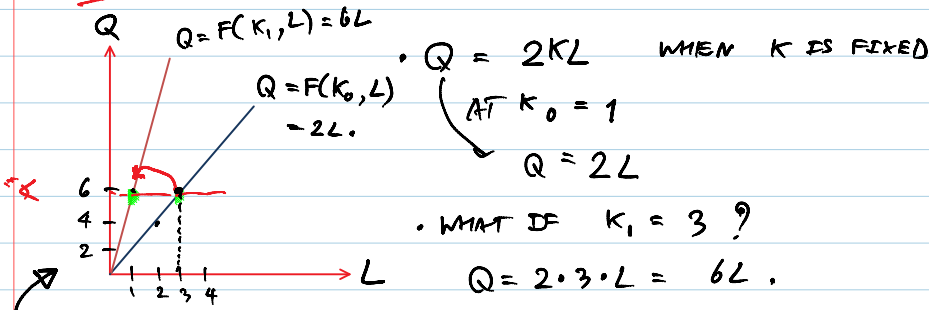 Q
Q = F(K₁, L) = 6L
Q = F(K₀, L)
= 2L.
6
4
2
1 2 3 4
L
• Q = 2KL WHEN K IS FIXED
AT K₀ = 1
Q = 2L
• WHAT IF K₁ = 3 ?
Q = 2·3·L = 6L.